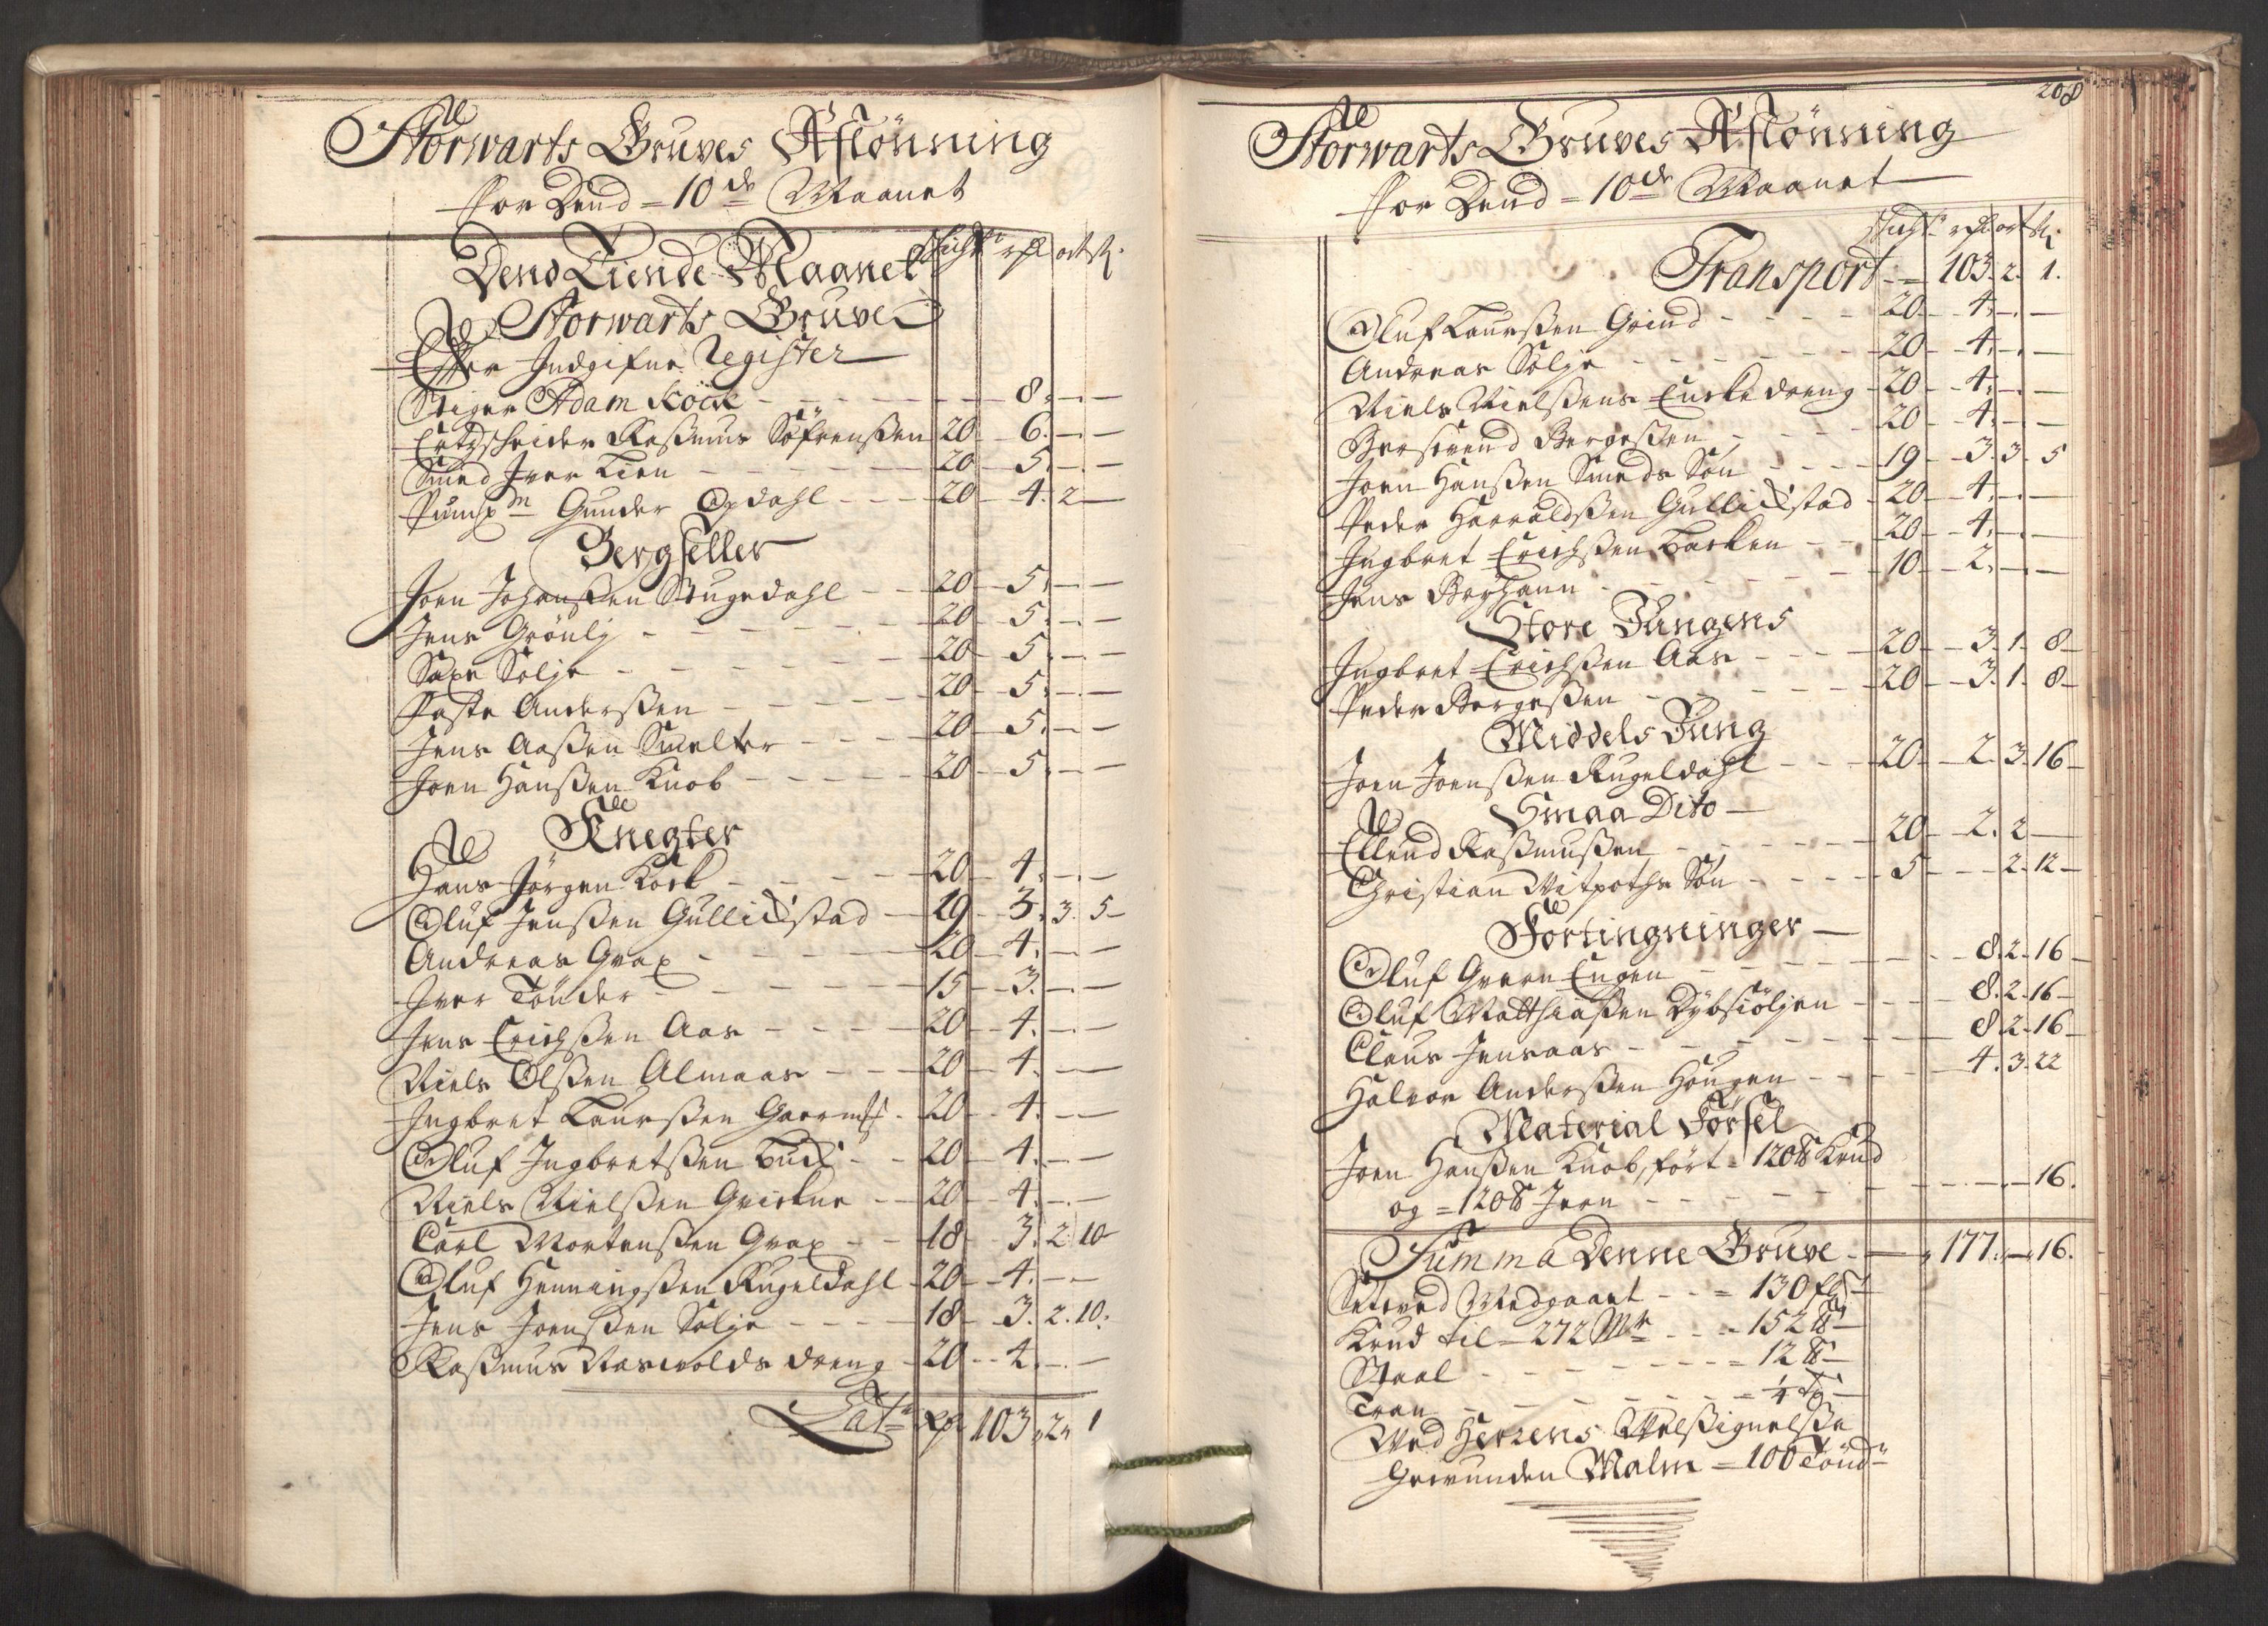 Storwarts Gruves Aflönning
for Dend = 10de Maanet
Dend Tiende Maanet Schicht rdl ort s.
Storwarts Gruve
Efter Indgifne Register
Stiger Adam Köck - - - 8. - -
Ertzscheider Rasmus Söfrensen 20 - 6. - -
Smed Iver Lien - - - 20 - 5. - -
Pumpm Gunder Opdahl - - - 20 - 4. 2 -
Bergseller
Joen Johansen Stugedahl - - 20 - 5. - -
Jens Grönli - - - 20 - 5. - -
Saxe Solje - - - 20 - 5. - -
Faste Andersen - - - 20 - 5. - -
Jens Aassen Smelter - - - 20 - 5. - -
Joen Hansen Knob - - - 20 - 5. - -
Knegter
Hans Jörgen Kock - - - 20 - 4. - -
Oluf Jensen Gullickstad - 19 - 3. 3. 5 -
Andreas Grax - - - 20 - 4. - -
Iver Tönder - - - 15 - 3. - -
Jens Erichsen Aas - - - 20 - 4. - -
Niels Olsen Almaas - - - 20 - 4. - -
Ingbret Laursen - 20 - 4. - -
Oluf Ingbretsen - - 20 - 4. - -
Niels Nielsen Qvickne - - 20 - 4. - -
Carl Mortensen Grax - - 18 - 3. 2. 10 -
Oluf Henningsen Rugeldahl - 20 - 4. - -
Jens Joensen Solje - - - 18 - 3. 2. 10.
Rasmus Naswolds dreng - 20 - 4. - -
Lats Rd 103 „ 2 „ 1
208
Storwarts Gruves Aflönning
for Dend = 10de Maanet
Schicht rdl ort s.
Transport - = 103. 2. 1.
Oluf Laursen Grind - - - 20 - 4. - -
Andreas Solje - - - 20 - 4. - -
Niels Nielsens Encke dreng - 20 - 4. - -
Bersvend Bergesen - - - 20 - 4. - -
Joen Hansen Smeds Sön - - - 19 - 3. 3. 5
Peder Haraldsen Gullickstad - 20 - 4. - -
Ingbret Erichsen Backen - - 20 - 4. - -
Jens Berghann - - - 10 - 2. - -
Store Jungens
Ingbret Erichsen Aas - - - 20 - 3. 1. 8 -
Peder Borgesen - - - 20 - 3. 1. 8 -
Middels Jung
Joen Joensen Rugeldahl - - - 20 - 2. 3. 16 -
Smaa Dito
Ellend Rasmusen - - - 20 - 2. 2 -
Christian Witpoths Sön - - - 5 - - 2. 12 -
Fortingninger
Oluf Qvern Engen - - - 8. 2. 16 -
Oluf Matthiasen Dybsiöljen - - - 8. 2. 16 -
Claus Jensaas - - - 8. 2. 16 -
Halvor Andersen Hougen - - - 4. 3. 22
Material Forsel
Joen Hansen Knob, fört = 120 ℔ Krud
og = 120 ℔ Jern - - - 16.
Summa Denne Gruve - „ 177. - „ 16.
Setteved Medgaaet - - = 130
Krud til = 272 - - = 152 ℔ -
Staal - - - = 12 ℔ -
Tran - - - = 1/4
Med Herrens Velsignelse
Gewunden Malm = 100 Tönd